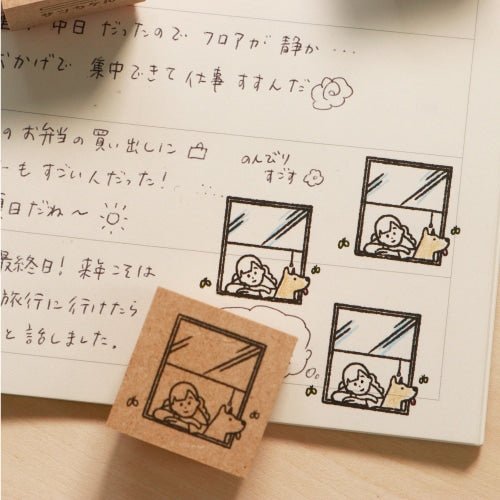 中日だったので フロアが 静か…
おかげで 集中できて 仕事 すすんだ
の お弁当の買い出しに
ーも すごい人だった!
日だね〜
のんびり
すごす
最終日! 来年こそは
旅行に行けたら
と 話しました。